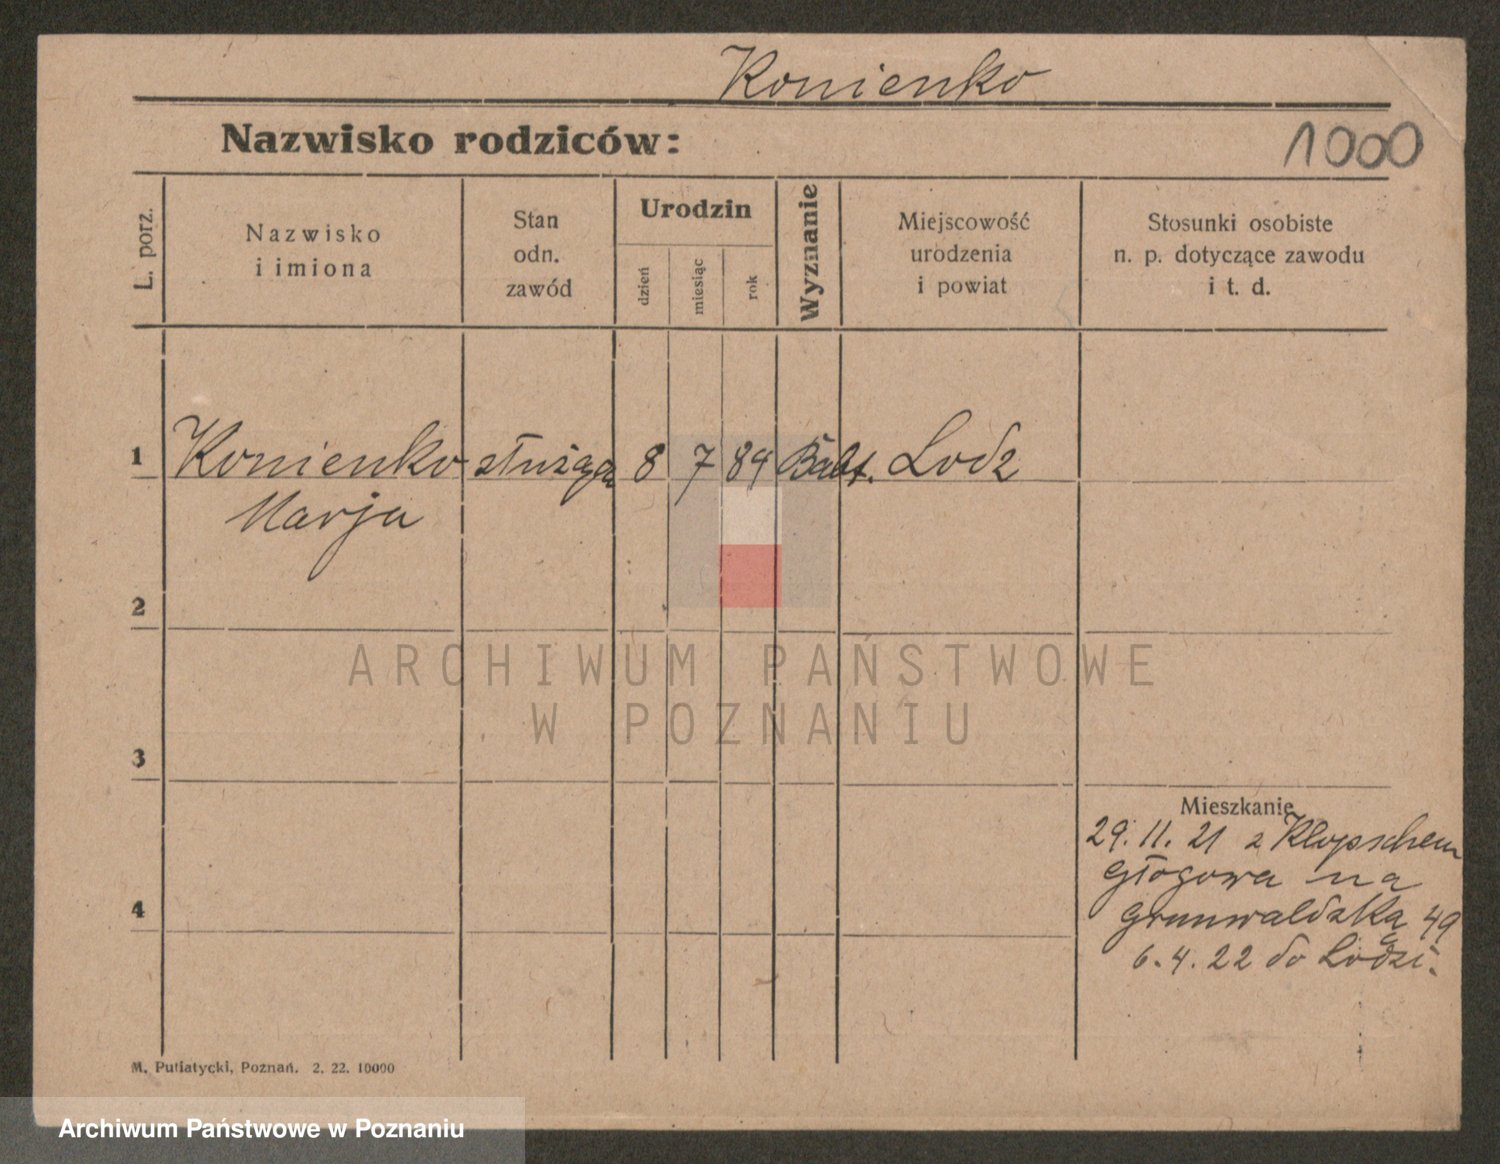 Konienko
Nazwisko rodziców:
1000
L. porz.
Nazwisko
i imiona
Stan
odn.
zawód
Urodzin
dzień
miesiąc
rok
Wyznanie
Miejscowość
urodzenia
i powiat
Stosunki osobiste
n. p. dotyczące zawodu
i t. d.
1 Konienko służąca 8 7 84 Lodz
Marja
2
ARCHIWUM PAŃSTWOWE
W POZNANIU
3
Mieszkanie
29. 11. 21 z Klopschem
głogowa na
grunwaldzką 49
4
6. 4. 22 do Lodzi.
M. Putiatycki, Poznań. 2. 22. 10000
Archiwum Państwowe w Poznaniu